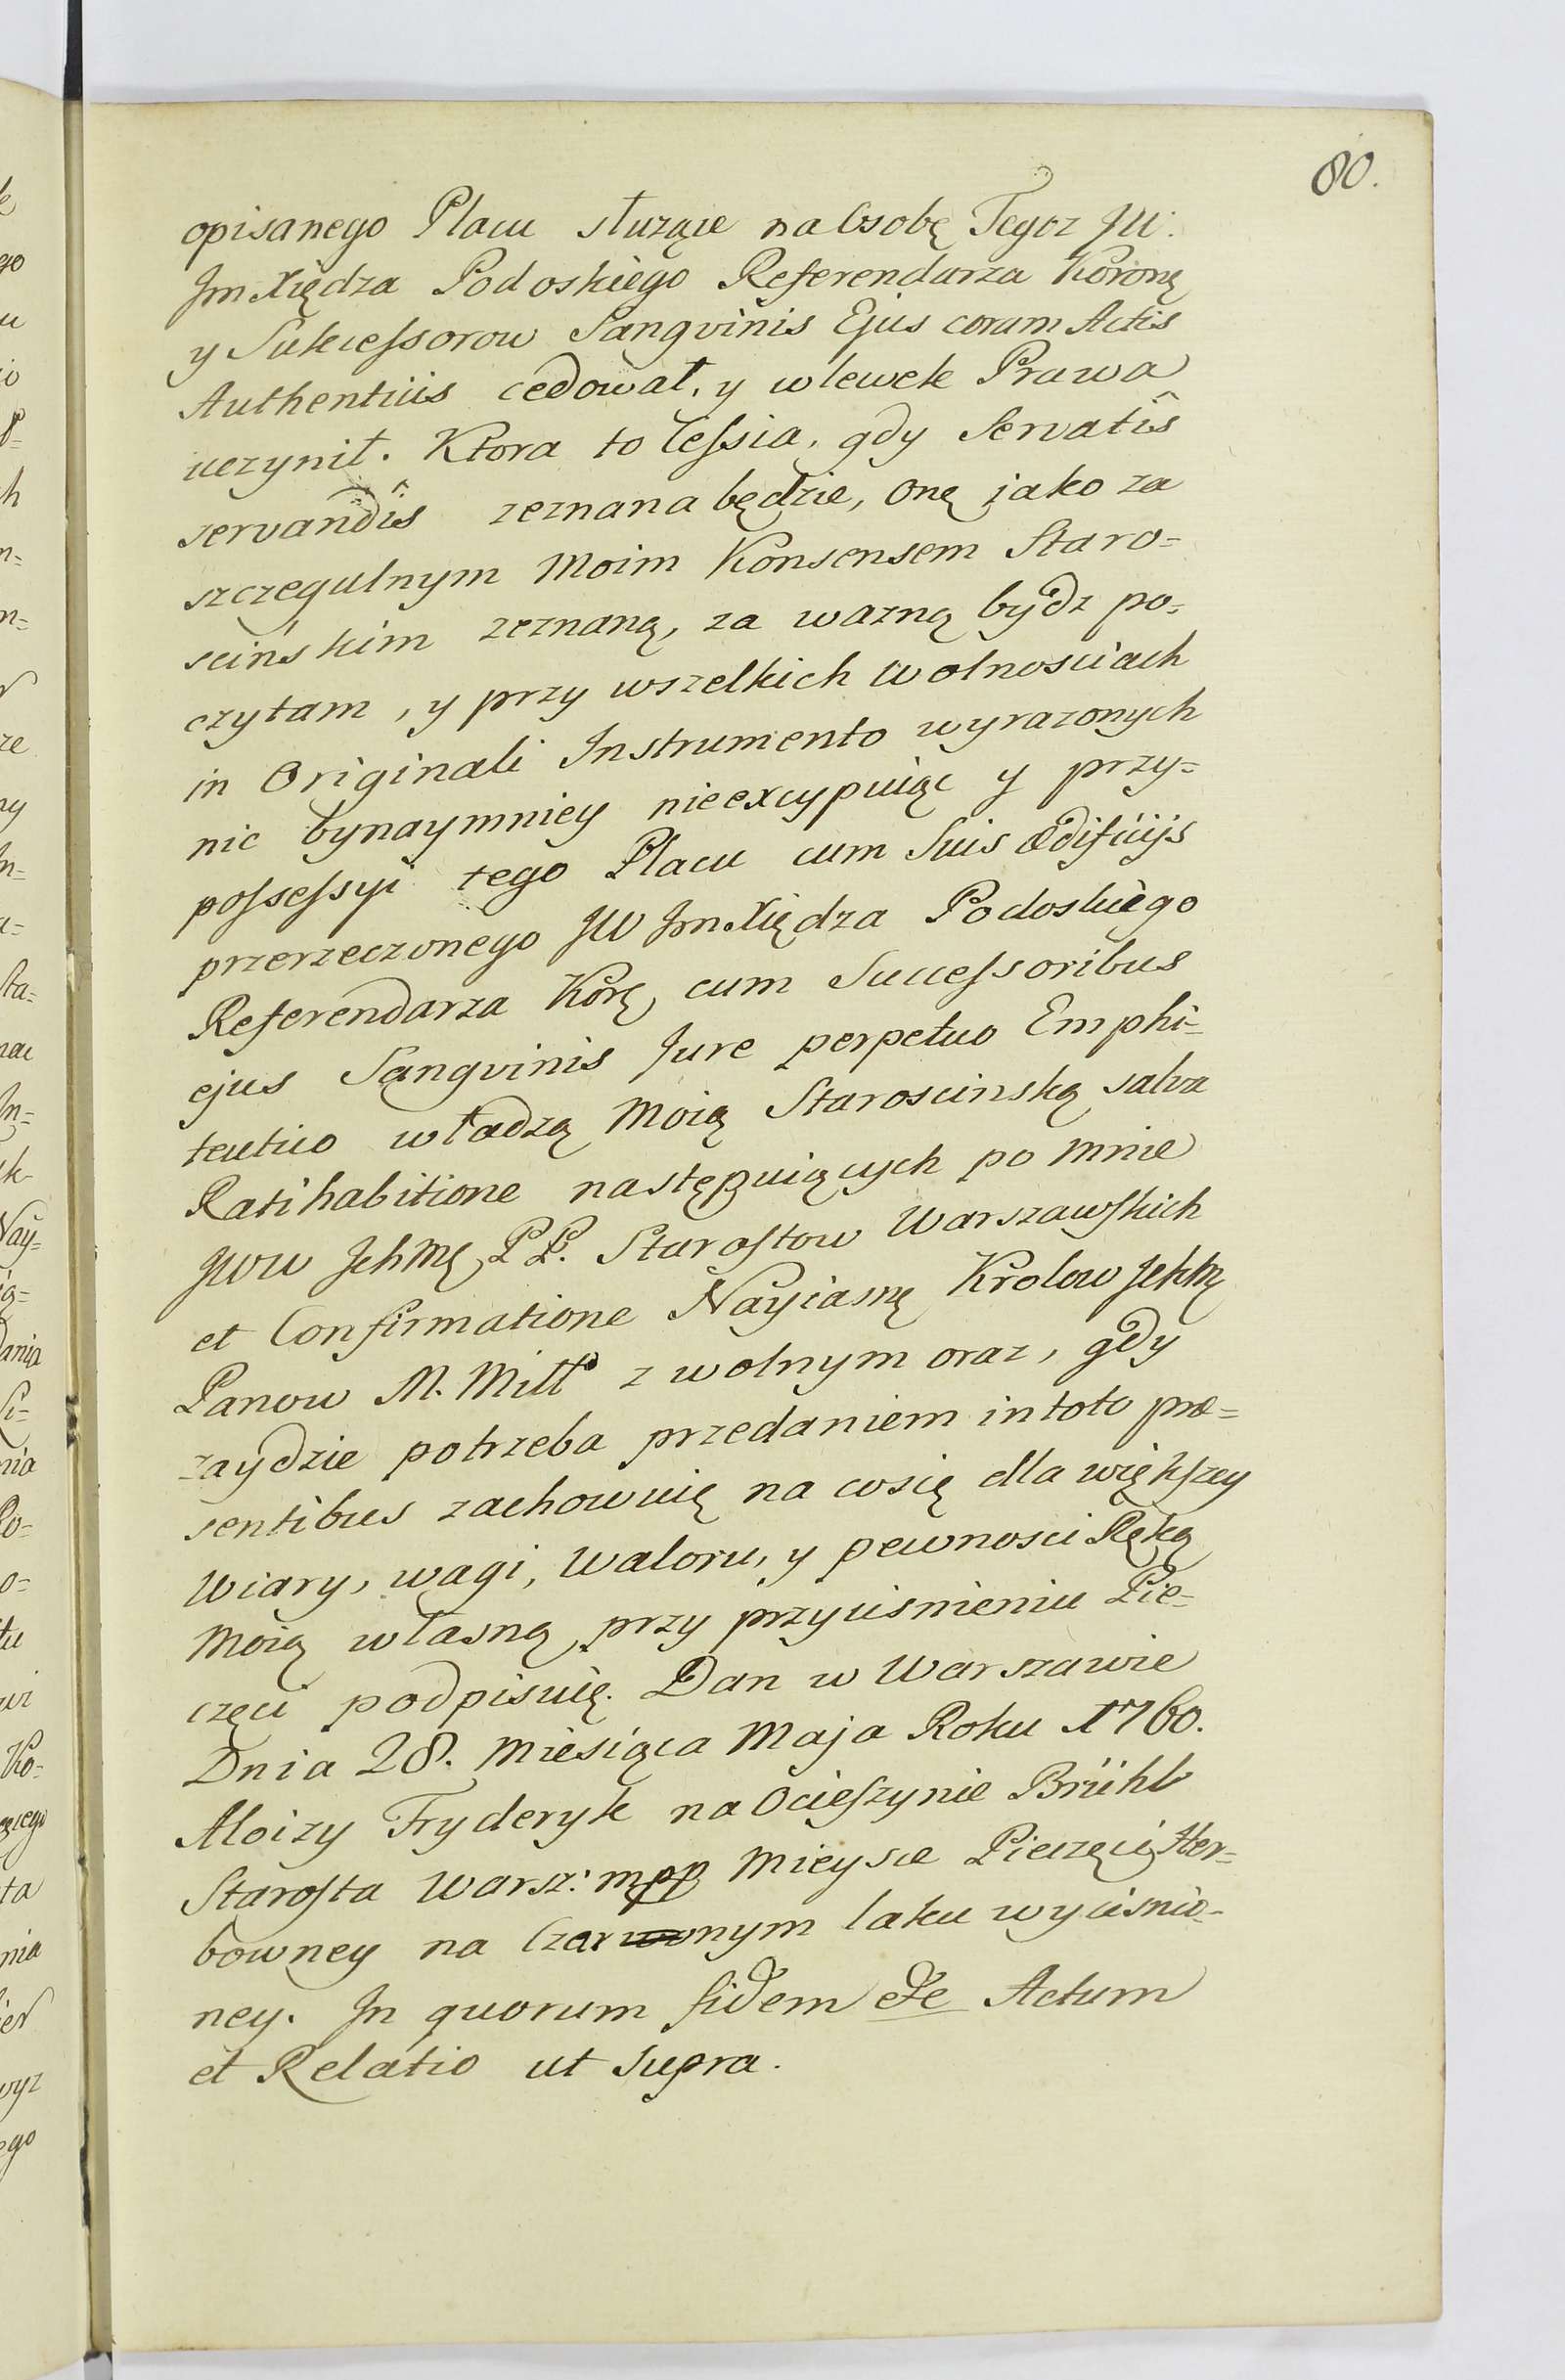 80.
opisanego Placu służące na Osobę Tegoz JW.
Jm Xiędza Podoskiego Referendarza Koronę
y Sukcessorow Sangvinis Ejus coram Actis
Authenticis cedował, y wlewek Prawa
uczynił. Ktora to Cessia, gdy Servatis
servandis zeznana będzie, onę jako za
szczegulnym Moim Konsensem Staro=
scińskim zeznaną, za wazną bydz po=
czytam, y przy wszelkich Wolnosciach
in Originali Instrumento wyrazonych
nic bynaymniey nieexcypuiąc y przy=
possessyi tego Placu cum Suis ædificijs
przerzeczonego JW Jm Xiędza Podoskiego
Referendarza Korę, cum Successoribus
ejus Sangvinis Jure perpetuo Emphi=
teutico władzą Moią Staroscinską salva
Ratihabitione następuiących po mnie
JWW JchMę PP. Starostow Warszawskich
et Confirmatione Nayiasnę Krolow JchMę
Panow M. Miłł z wolnym oraz, gdy
zaydzie potrzeba przedaniem in toto præ=
sentibus zachowuię na co się dla większey
Wiary, wagi, Waloru, y pewnosci Ręką
Moią własną, przy przycisnieniu Pie=
częci podpisuię. Dan w Warszawie
Dnia 28. Miesiąca Maja Roku 1760.
Aloizy Fryderyk na Ocieszynie Brühl
Starosta Warsz: mpp Mieysce Pieczęci Her=
bowney na Czarwonym laku wycisnio=
ney. In quorum fidem etc Actum
et Relatio ut supra.